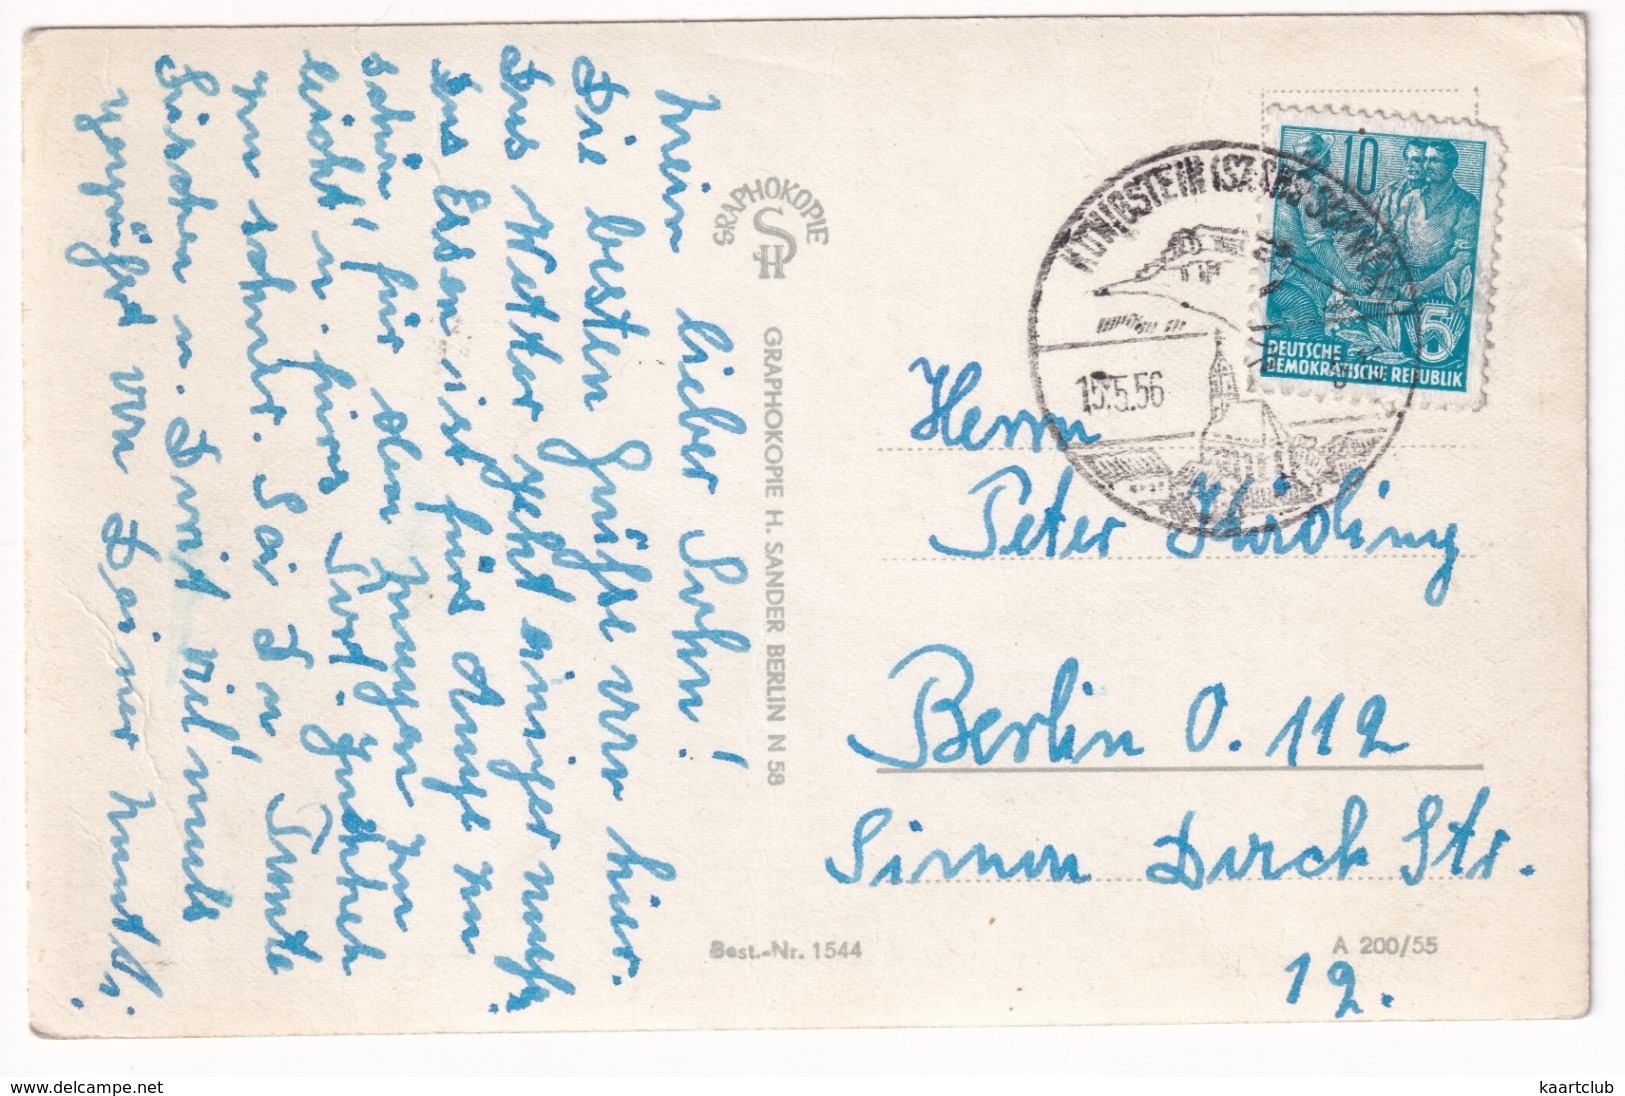 Mein lieber Sohn!
Die besten Grüße von hier.
Das Wetter geht einigermaß.
Das Essen ist fürs Auge zu
schön, für den Magen zu
leicht u. fürs
zu schwer. Sei Du Tante
Lieschen u. viel'mals
gegrüßt von Deiner Mutti.
GRAPHOKOPIE
GRAPHOKOPIE H. SANDER BERLIN N 58
KÖNIGSTEIN (SÄCHS SCHWEIZ)
15.5.56
10
5
DEUTSCHE
DEMOKRATISCHE REPUBLIK
Herrn
Peter
Berlin O. 112
Simon Str.
12.
Best.-Nr. 1544
A 200/55
www.delcampe.net
kaartclub